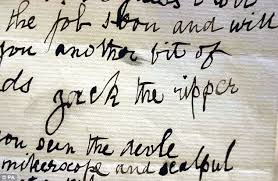 the job soon and will
you another bit of
ds
Jack the ripper
you seen the devle
mikerscope and scalpul
PA